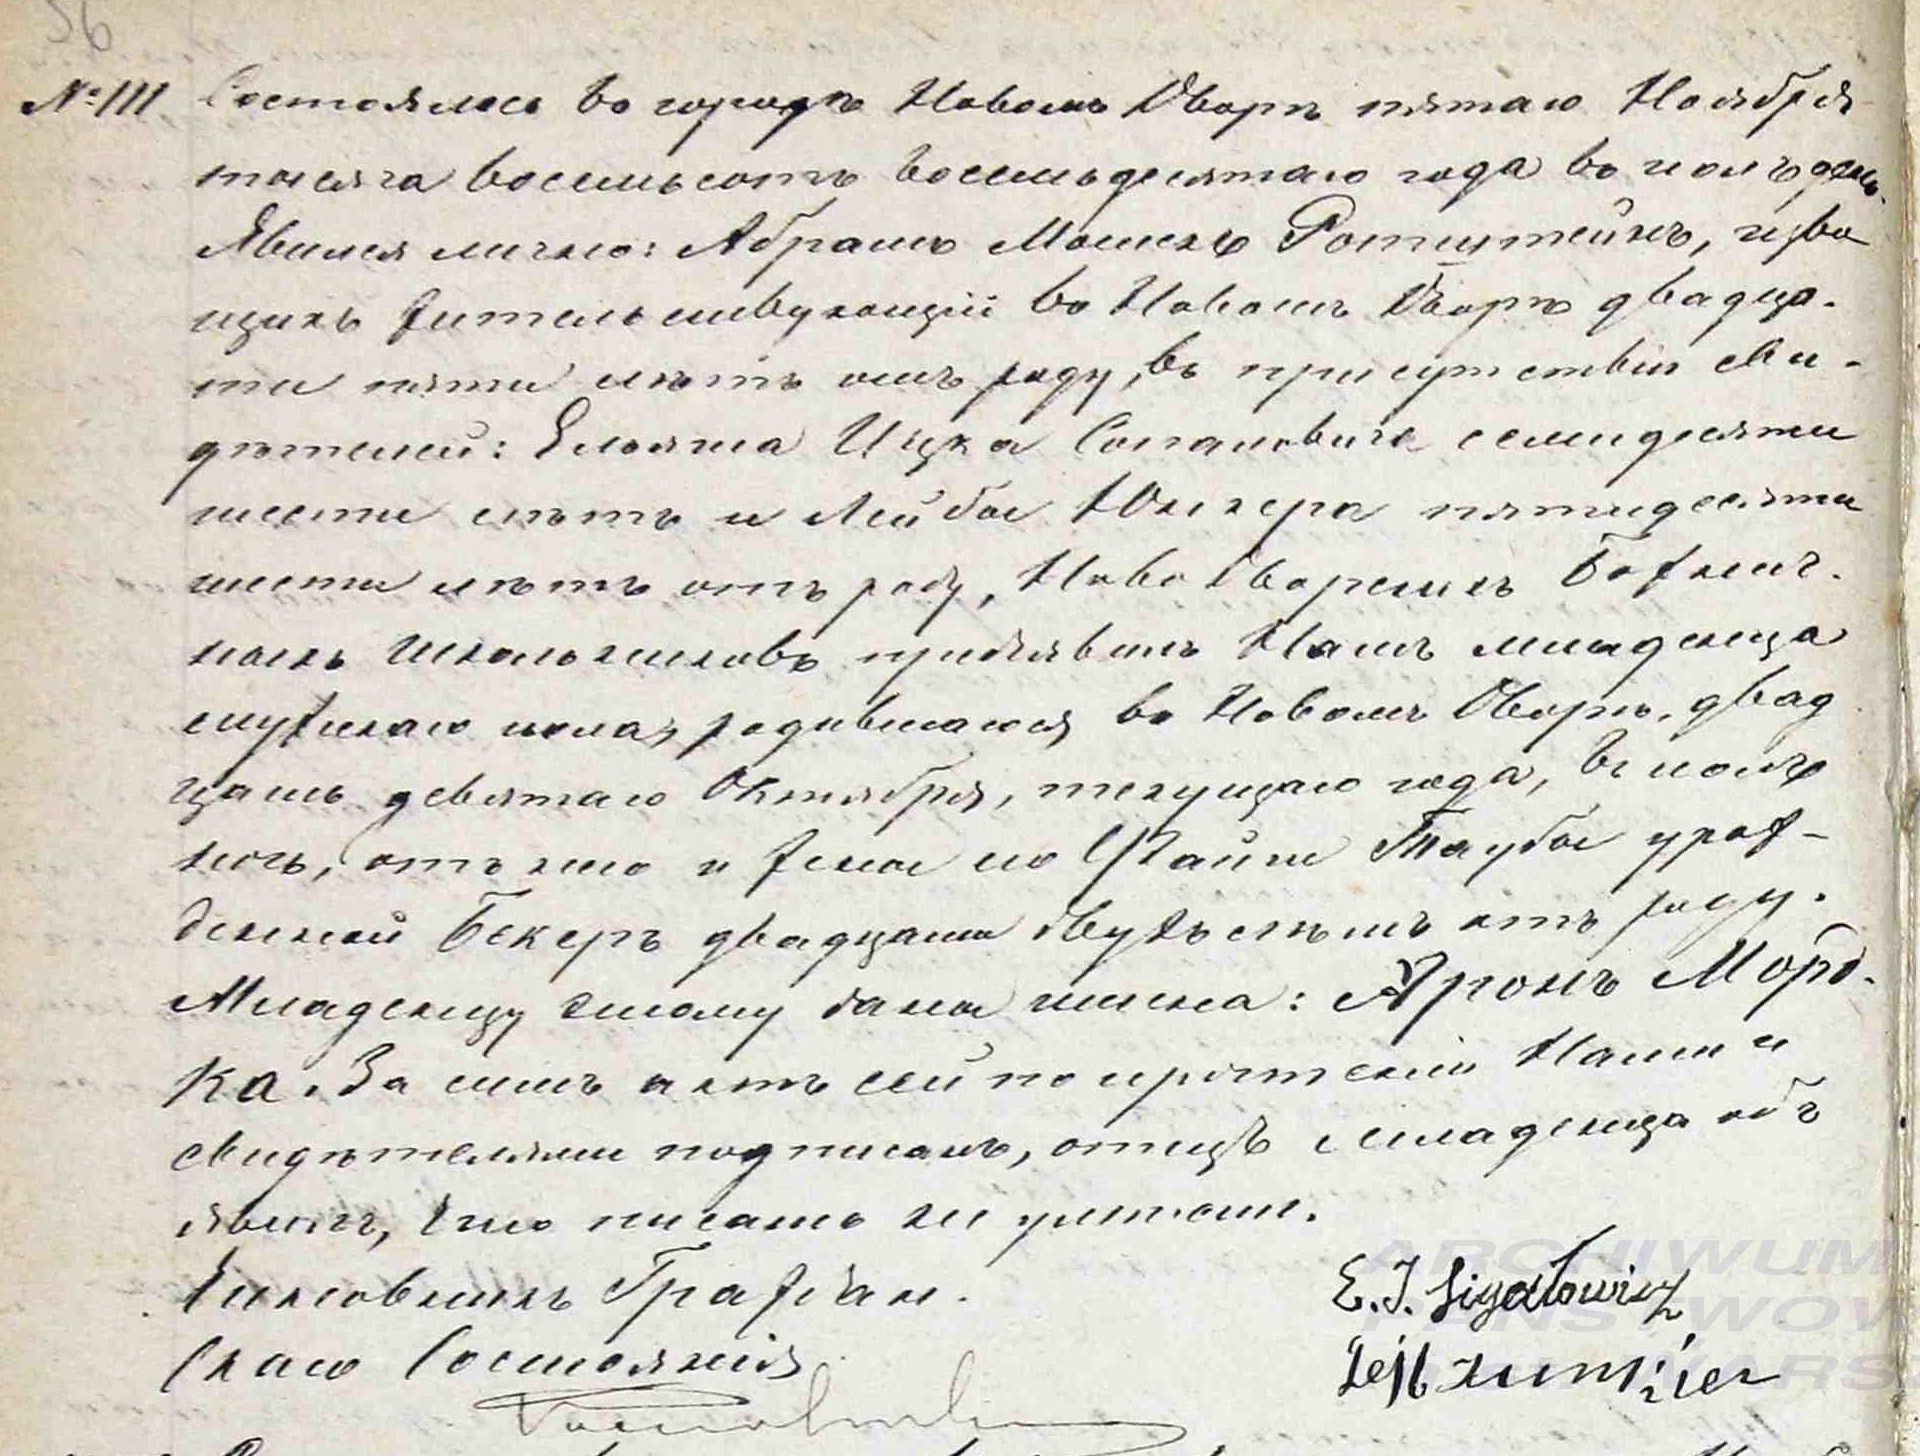 56
№ 111 Состоялось въ городѣ Новомъ Дворѣ пятаго Ноября
тысяча восемьсотъ восемьдесятаго года въ полъ день.
Явился лично: Абрамъ Мошекъ Ротштейнъ, изво
щикъ жительствующій въ Новомъ Дворѣ двадца-
ти пяти лѣтъ отъ роду, въ присутствіи сви-
дѣтелей: Ельяша Ицка семидесяти
шести лѣтъ и Лейбы Юнкера пятидесяти
шести лѣтъ отъ роду, Ново Дворскихъ Божнич-
ныхъ школьниковъ предъявилъ Намъ младенца
мужскаго пола, родившагося въ Новомъ Дворѣ, двад
цать девятаго Октября, текущаго года, въ полъ
ночь, отъ него и жены его Файги Таубы урож-
денной Бекеръ двадцати двухъ лѣтъ отъ роду.
Младенцу этому даны имена: Аронъ Морд-
ка. За симъ актъ сей по прочтеніи Нами и
свидѣтелями подписанъ, отецъ младенца объ
явилъ, что писать не умѣетъ.
Чиновникъ Граждан-
скаго Состоянія
E. J. Sigalowicz
Lejb Junkier
ARCHIWUM